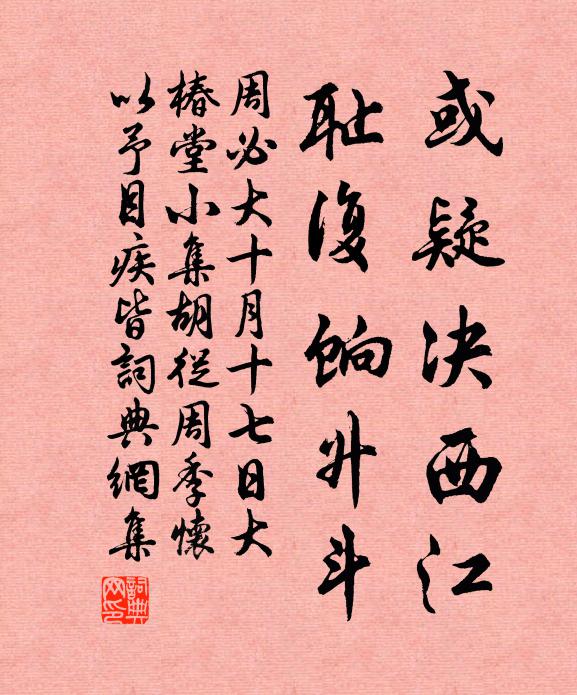 或疑决西江
耻復餉升斗
周必大十月十七日大
椿堂小集胡從周季懷
以予目疾皆詞典網集
詞典網印